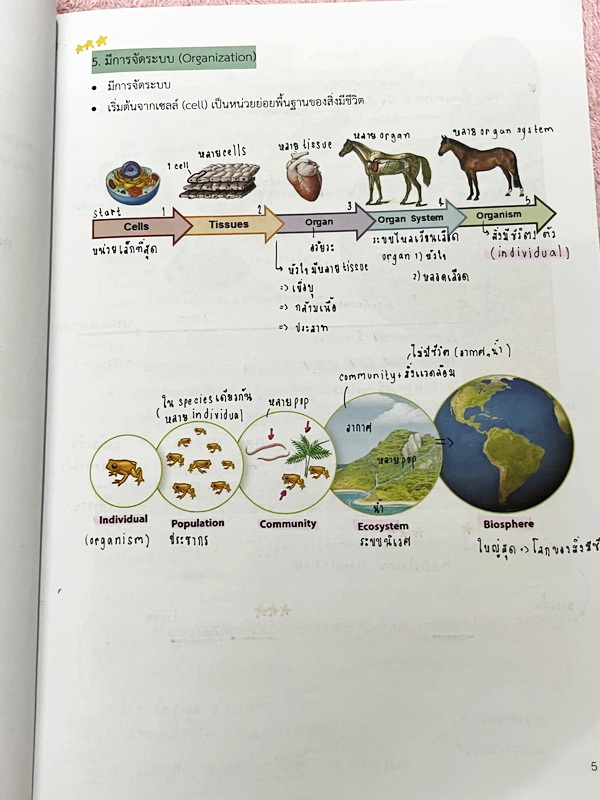 5. มีการจัดระบบ (Organization)
• มีการจัดระบบ
• เริ่มต้นจากเซลล์ (cell) เป็นหน่วยย่อยพื้นฐานของสิ่งมีชีวิต
หลาย organ
หลาย organ system
หลาย tissue
หลาย cells
1 cell
start
1
2
3
4
5
Cells
Tissues
Organ
Organ System
Organism
หน่วยเล็กที่สุด
อวัยวะ
ระบบไหลเวียนเลือด
organ 1) หัวใจ
2) หลอดเลือด
สิ่งมีชีวิต 1 ตัว
(individual)
หัวใจมีหลาย tissue
=> เยื่อบุ
=> กล้ามเนื้อ
=> ประสาท
ไม่มีชีวิต (อากาศ, น้ำ)
community + สิ่งแวดล้อม
ใน species เดียวกัน
(หลาย individual)
หลาย pop
อากาศ
หลาย pop
=>
น้ำ
Individual
Population
Community
Ecosystem
Biosphere
(organism)
ประชากร
ระบบนิเวศ
ใหญ่สุด => โลกของสิ่งมีชี
5